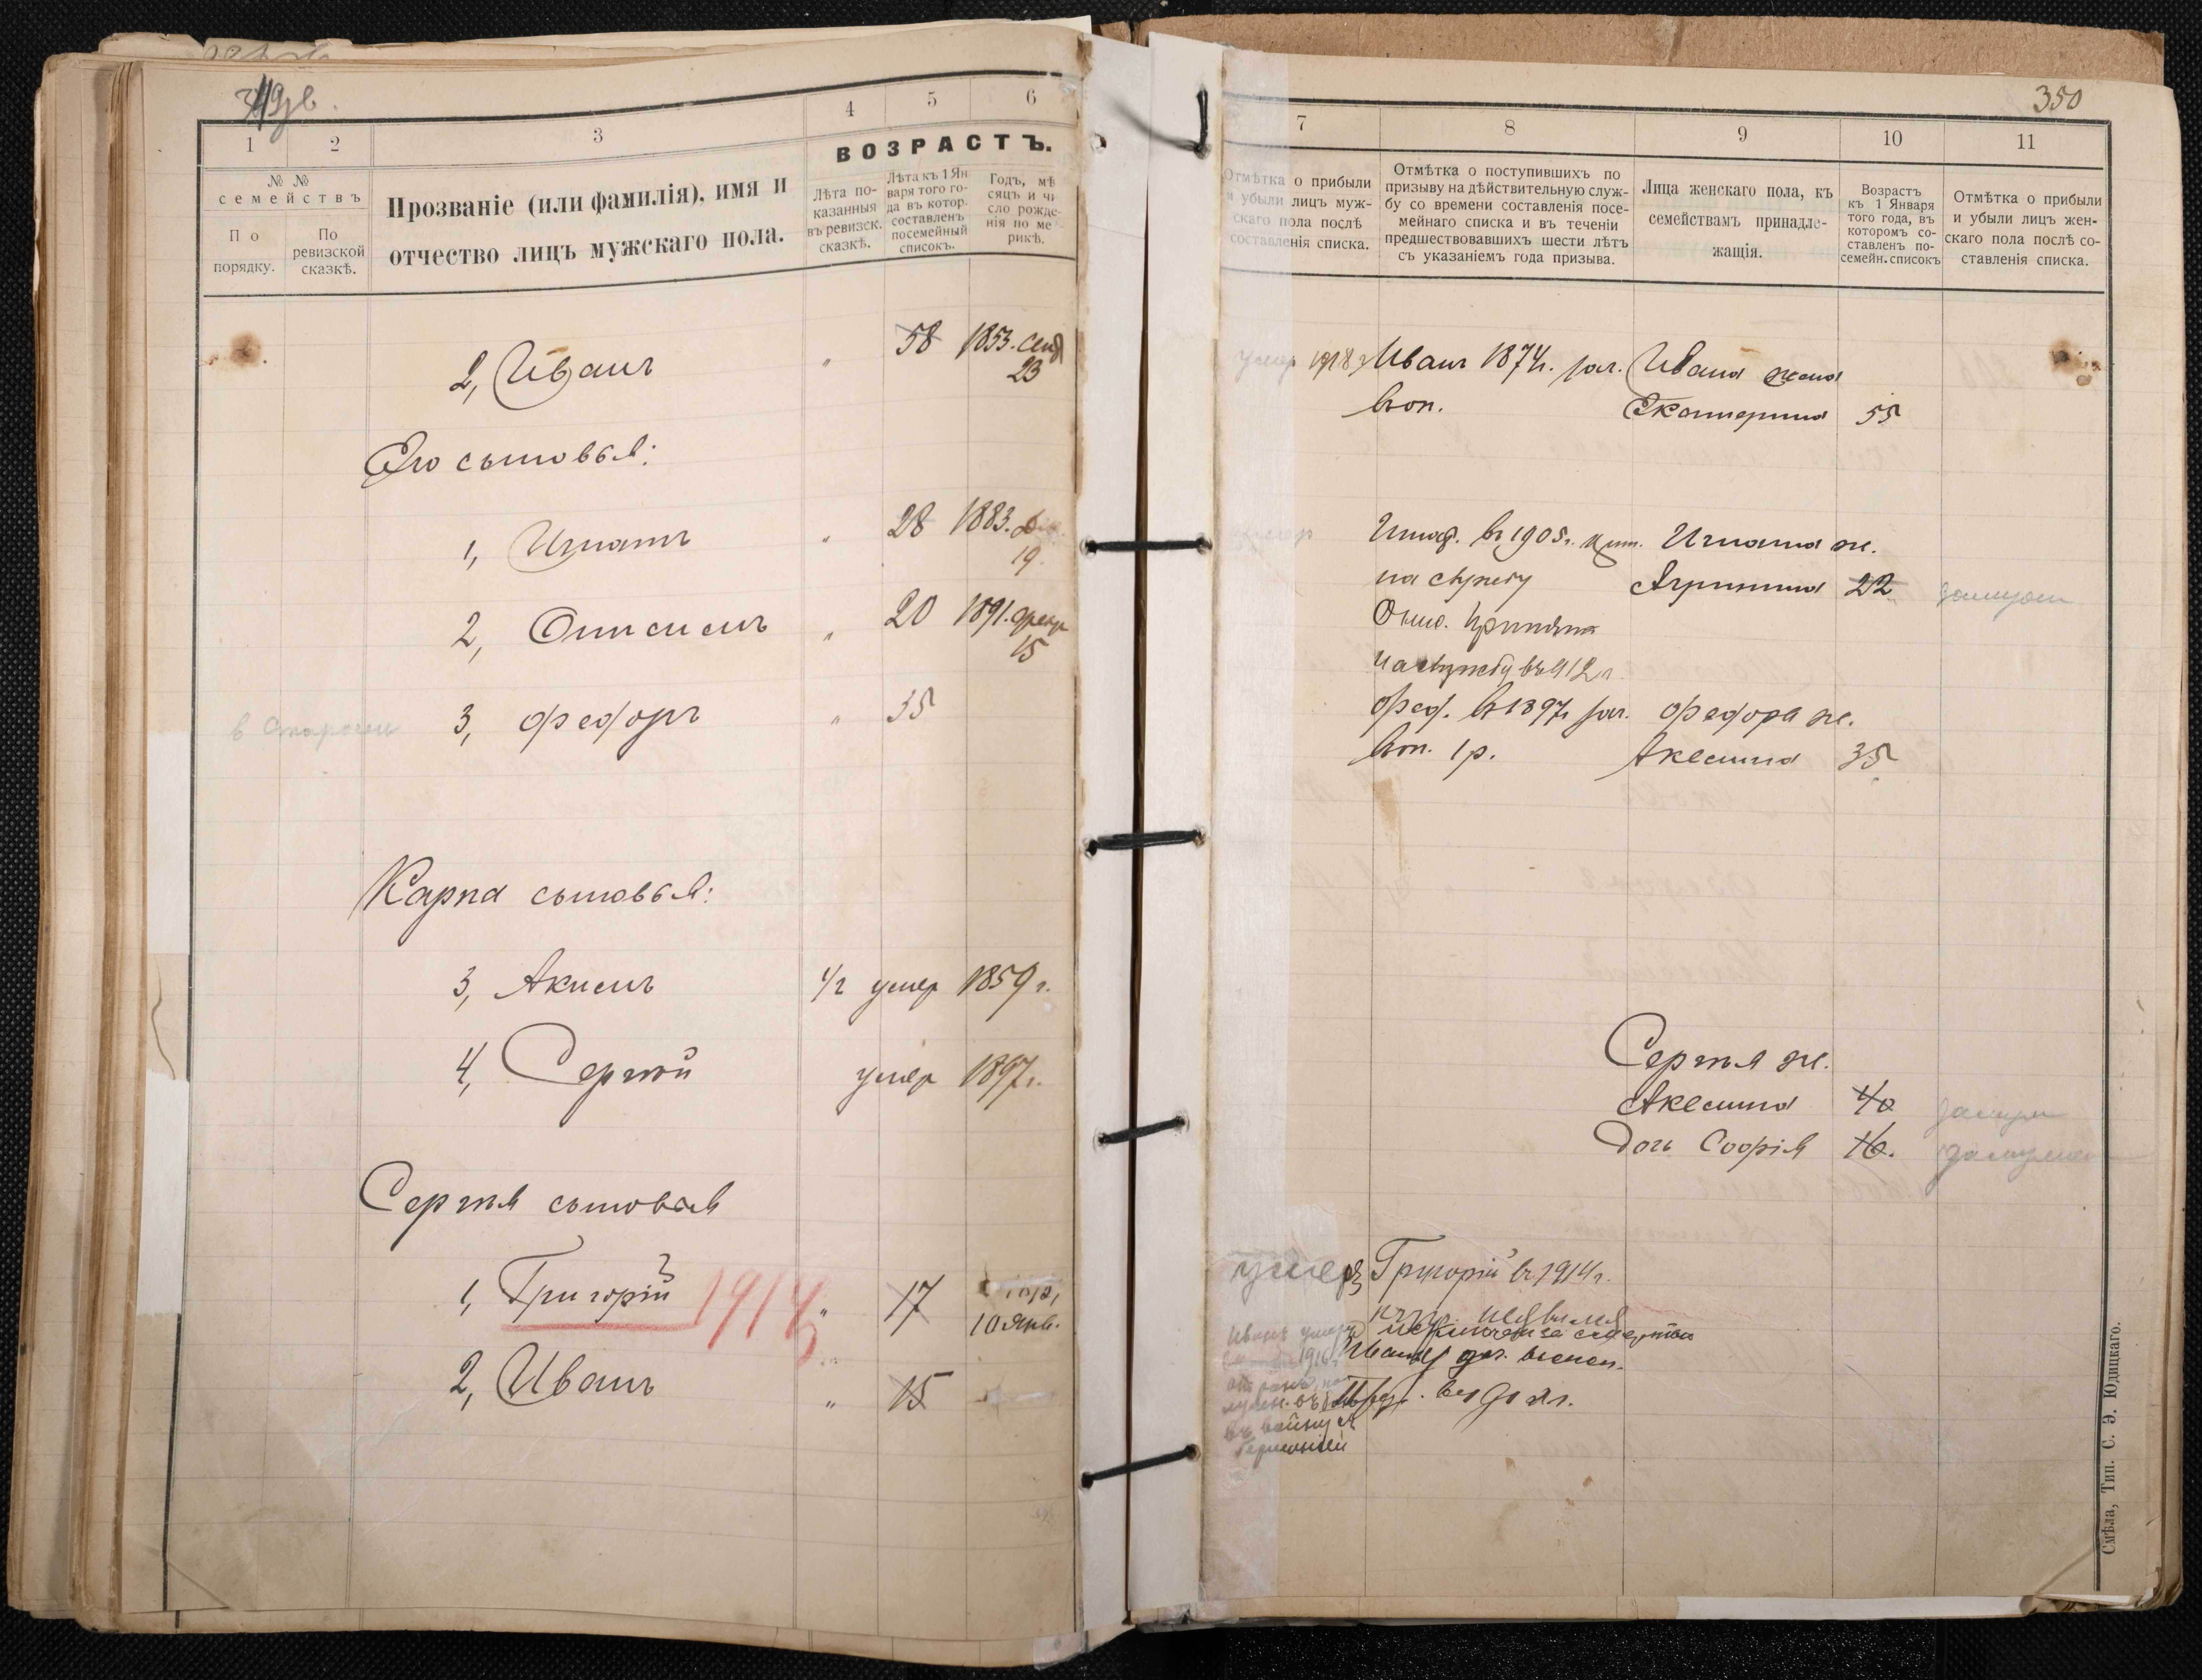 349 зв.
1
2
3
4
5
6
ВОЗРАСТЪ.
№ №
семействъ
По
порядку.
По
ревизской
сказкѣ.
Прозваніе (или фамилія), имя и
отчество лицъ мужскаго пола.
Лѣта по-
казанныя
въ ревизск.
сказкѣ.
Лѣта къ 1 Ян
варя того го-
да въ котор.
составленъ
посемейный
списокъ.
Годъ, мѣ
сяцъ и чи
сло рожде-
нія по ме
рикѣ.
2, Иванъ " 58 1853. Сент
23
Его сыновья:
1, Игнатъ " 28 1883.
19.
2, Онисимъ " 20 1891. февр
15
в 3, Федоръ " 35
Карпа сыновья:
3, Акимъ 1/2 умер 1859 г.
4, Сергѣй умер 1897 г.
Сергѣя сыновья
1, Григорій 1914 " 17
10 Янв.
2, Иванъ " 15
350
7
8
9
10
11
Отмѣтка о прибыли
и убыли лицъ муж-
скаго пола послѣ
составленія списка.
Отмѣтка о поступившихъ по
призыву на дѣйствительную служ-
бу со времени составленія посе-
мейнаго списка и въ теченіи
предшествовавшихъ шести лѣтъ
съ указаніемъ года призыва.
Лица женскаго пола, къ
семействамъ принадле-
жащія.
Возрастъ
къ 1 Января
того года, въ
которомъ со-
ставленъ по-
семейн. списокъ
Отмѣтка о прибыли
и убыли лицъ жен-
скаго пола послѣ со-
ставленія списка.
умер 1918 г Иванъ 1874 г. зач. Ивана жена
въ оп. Екатерина 55
умер Игнат. въ 1905 г. прин. Игната ж.
на службу Агрипина 22 замужем
Онис. Принятъ
на службу въ 912 г
Фед. въ 1897 г зач. Федора ж.
въ оп. 1 р. Аксинія 35
Сергѣя ж.
Аксинія 40 замуж
Дочь Софія 16. замужем
умеръ Григорій въ 1914 г.
исключен за смертью
Иванъ умеръ
1916 г Иванъ
въ войну съ
Германіей
Смѣла, Тип. С. Э. Юдицкаго.